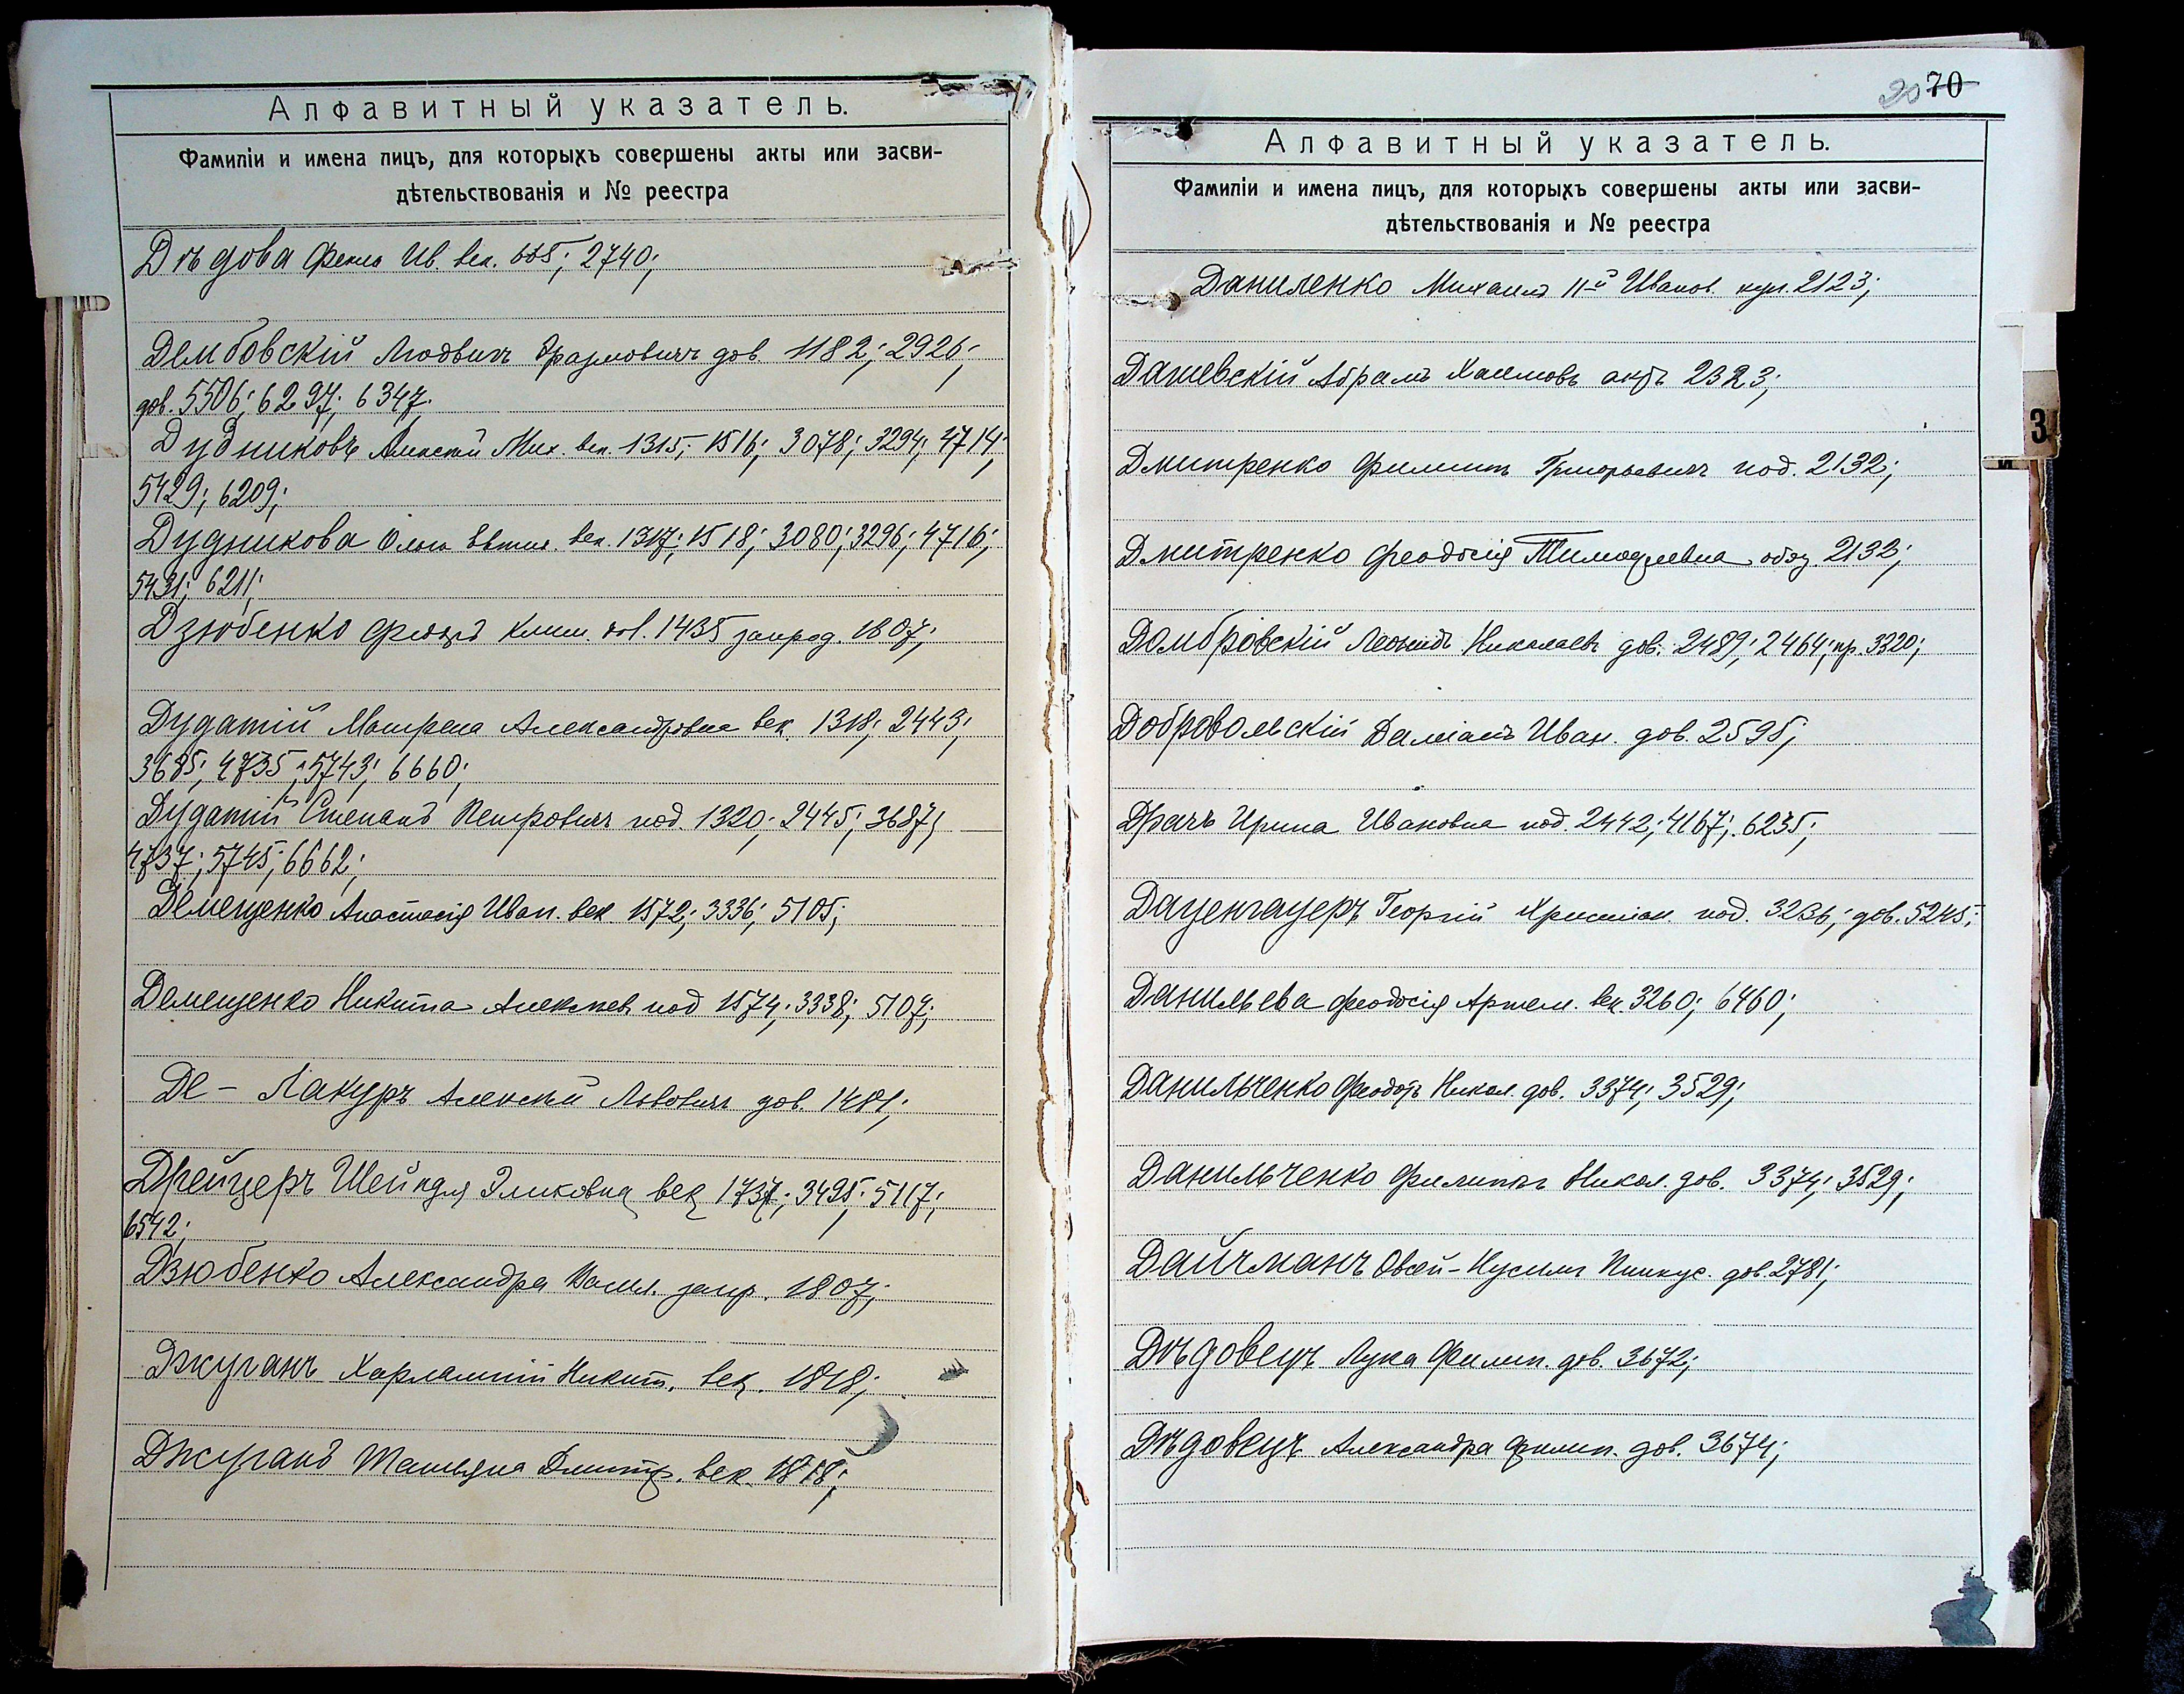 Алфавитный указатель.
Фамиліи и имена лицъ, для которыхъ совершены акты или засви-
дѣтельствованія и № реестра
Дѣдова Фекла Ив. век. 2740;
Дембовскій Людвигъ дов. 1182; 2926;
дов. 5506; 6297; 6347;
Дудниковъ Алексѣй Мих. век. 1315; 1516; 3078; 3294; 4714;
5429; 6209;
Дудникова Ольга Евтих. век. 1317; 1518; 3080; 3296; 4716;
5431; 6211;
Дзюбенко Клим. 1435 запрод. 1807;
Дудатій Матрена Александровна век. 1318; 2443;
3685; 4735; 5743; 6660;
Дудатій Степанъ Петровичъ под. 1320; 2445; 3687;
4737; 5745; 6662;
Демещенко Анастасія Иван. век. 1572; 3336; 5105;
Демещенко Никита Алексѣев. под 1574; 3338; 5107;
Де - Лакуръ Алексѣй Львовичъ дов. 1481;
Дрейцеръ Шейндля Эликовна век 1737; 3495; 5117;
6542;
Дзюбенко Александра запр. 1807;
Джуганъ Харлампій Никит. век. 1818;
Джуганъ Татьяна Дмитр. век. 1818;
70
Алфавитный указатель.
Фамиліи и имена лицъ, для которыхъ совершены акты или засви-
дѣтельствованія и № реестра
Даниленко Михаилъ 11й Иванов. куп. 2123;
Дашевскій Абрамъ Хаимовъ актъ 2323;
Дмитренко Филиппъ Григорьевичъ под. 2132;
Дмитренко Феодосія Тимофеевна обяз. 2132;
Домбровскій Леонидъ Николаевъ дов. 2489; 2464; пр. 3320;
Добровольскій Даміанъ Иван. дов. 2595;
Драчъ Ирина Ивановна под. 2442; 4167; 6235;
Даценгауеръ Георгій Христіан. под. 3236; дов. 5245;
Данильева Феодосія Артем. век. 3260; 6460;
Данильченко Феодотъ Никол. дов. 3374; 3529;
Данильченко Филиппъ Никол. дов. 3374; 3529;
Дайчманъ Овсей-Нусимъ Пинкус. дов. 2781;
Дѣдовецъ Лука Филип. дов. 3672;
Дѣдовецъ Александра Филип. дов. 3674;
З